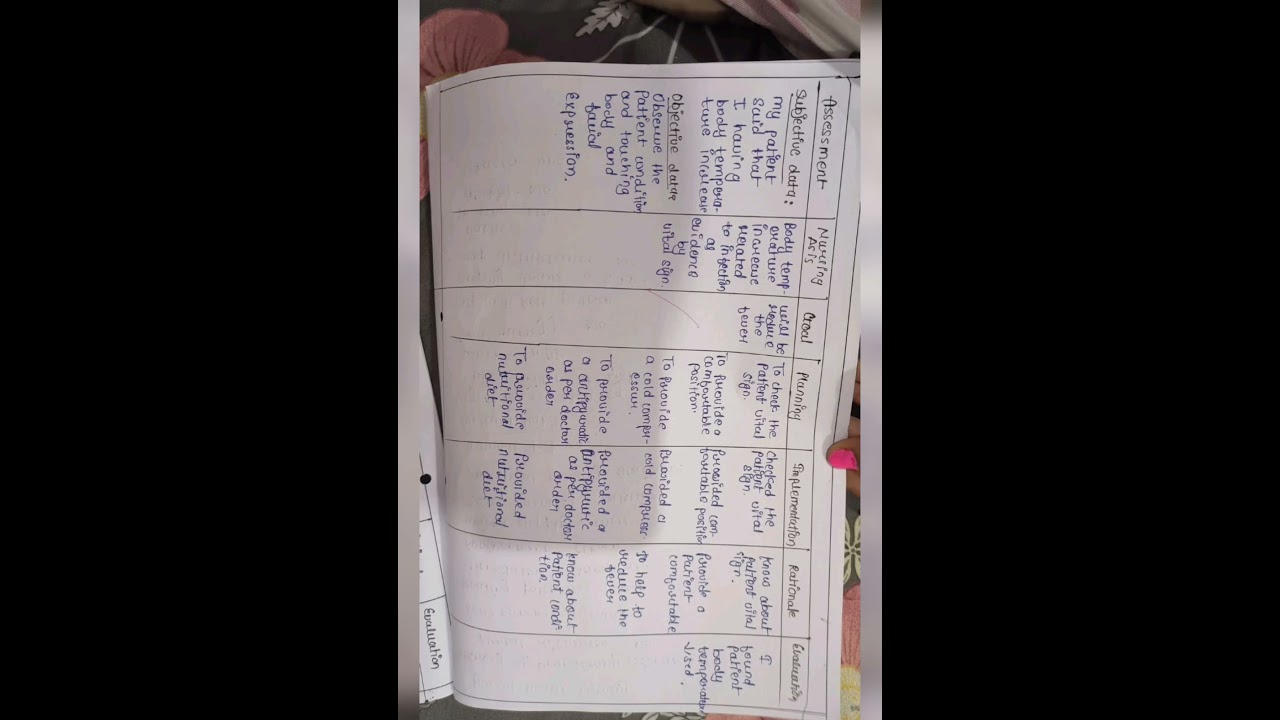 Assessment
Subjective data:
my patient
said that
I having
body tempera-
ture increase
Objective data
Observe the
Patient condition
and touching
body and
facial
expression.
Nursing
Body temp-
erature
increase
related
to infection
as
evidence
by
vital sign.
Goal
will be
reduce
the
fever
Planning
To check the
patient vital
sign.
To provide a
comfortable
position.
To provide
a cold compr-
essur.
To provide
a antipyratic
as per doctor
order
To provide
nutritional
diet
Implementation
checked the
patient vital
sign.
Provided com-
fortable position
provided a
cold compress-
provided a
antipyretic
as per doctor
order
provided
nutritional
diet
Rationale
know about
patient vital
sign.
provide a
patient
comfortable
To help to
reduce the
fever
know about
patient condi
tion.
Evaluation
I
found
patient
body
temperature
Evaluation